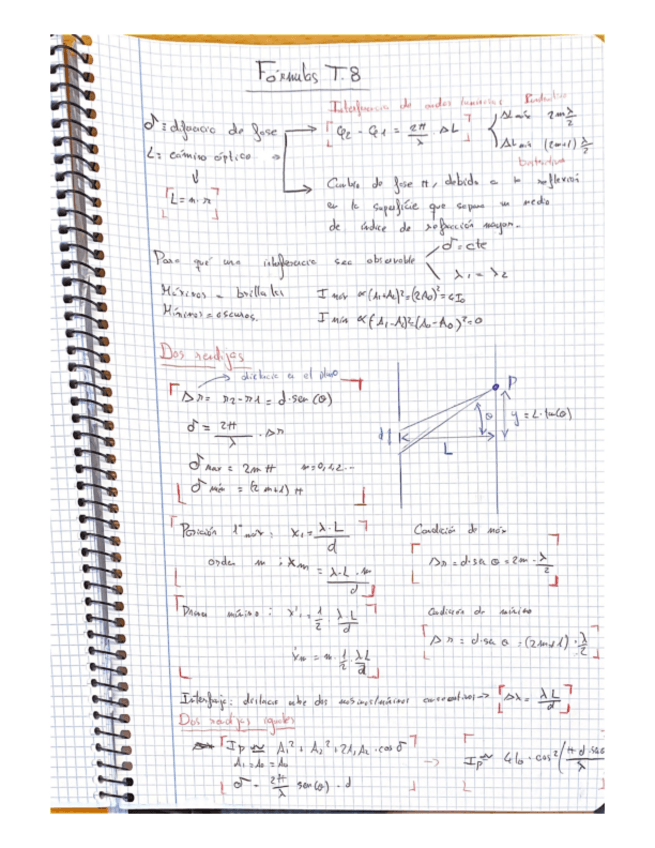 Fórmulas T.8
Interferencia de ondas luminosas: Constructiva
δ = diferencia de fase → φ2 - φ1 = 2π/λ · ΔL
ΔL máx 2m λ/2
ΔL mín (2m+1) λ/2
Destructiva
L = camino óptico
L = n · r
Cambio de fase π, debido a la reflexión
en la superficie que separa un medio
de índice de refracción mayor.
Para que una interferencia sea observable
δ = cte
λ1 = λ2
Máximos = brillantes I máx ∝ (A1+A2)² = (2A0)² = 4I0
Mínimos = oscuros. I mín ∝ (A1-A2)² = (A0-A0)² = 0
Dos rendijas
distancia en el plano
Δr = r2 - r1 = d · sen(θ)
δ = 2π/λ · Δr
δ máx = 2mπ m = 0,1,2...
δ mín = (2m+1)π
P
d
θ
y = L · tan(θ)
L
Posición 1º máx: x1 = λ·L/d
orden m: xm = λ·L·m/d
Condición de máx
Δr = d · sen θ = 2m · λ/2
mínimo: x'1 = 1/2 · λL/d
x'm = m · 1/2 · λL/d
Condición de mínimo
Δr = d · sen θ = (2m+1) · λ/2
Interfranja: distancia entre dos máximos/mínimos consecutivos → Δx = λL/d
Dos rendijas iguales
Ip ≃ A1² + A2² + 2A1A2 · cos δ
A1 = A2 = A0
δ = 2π/λ sen(θ) · d
→ Ip ≃ 4I0 · cos²(π d · sen
λ